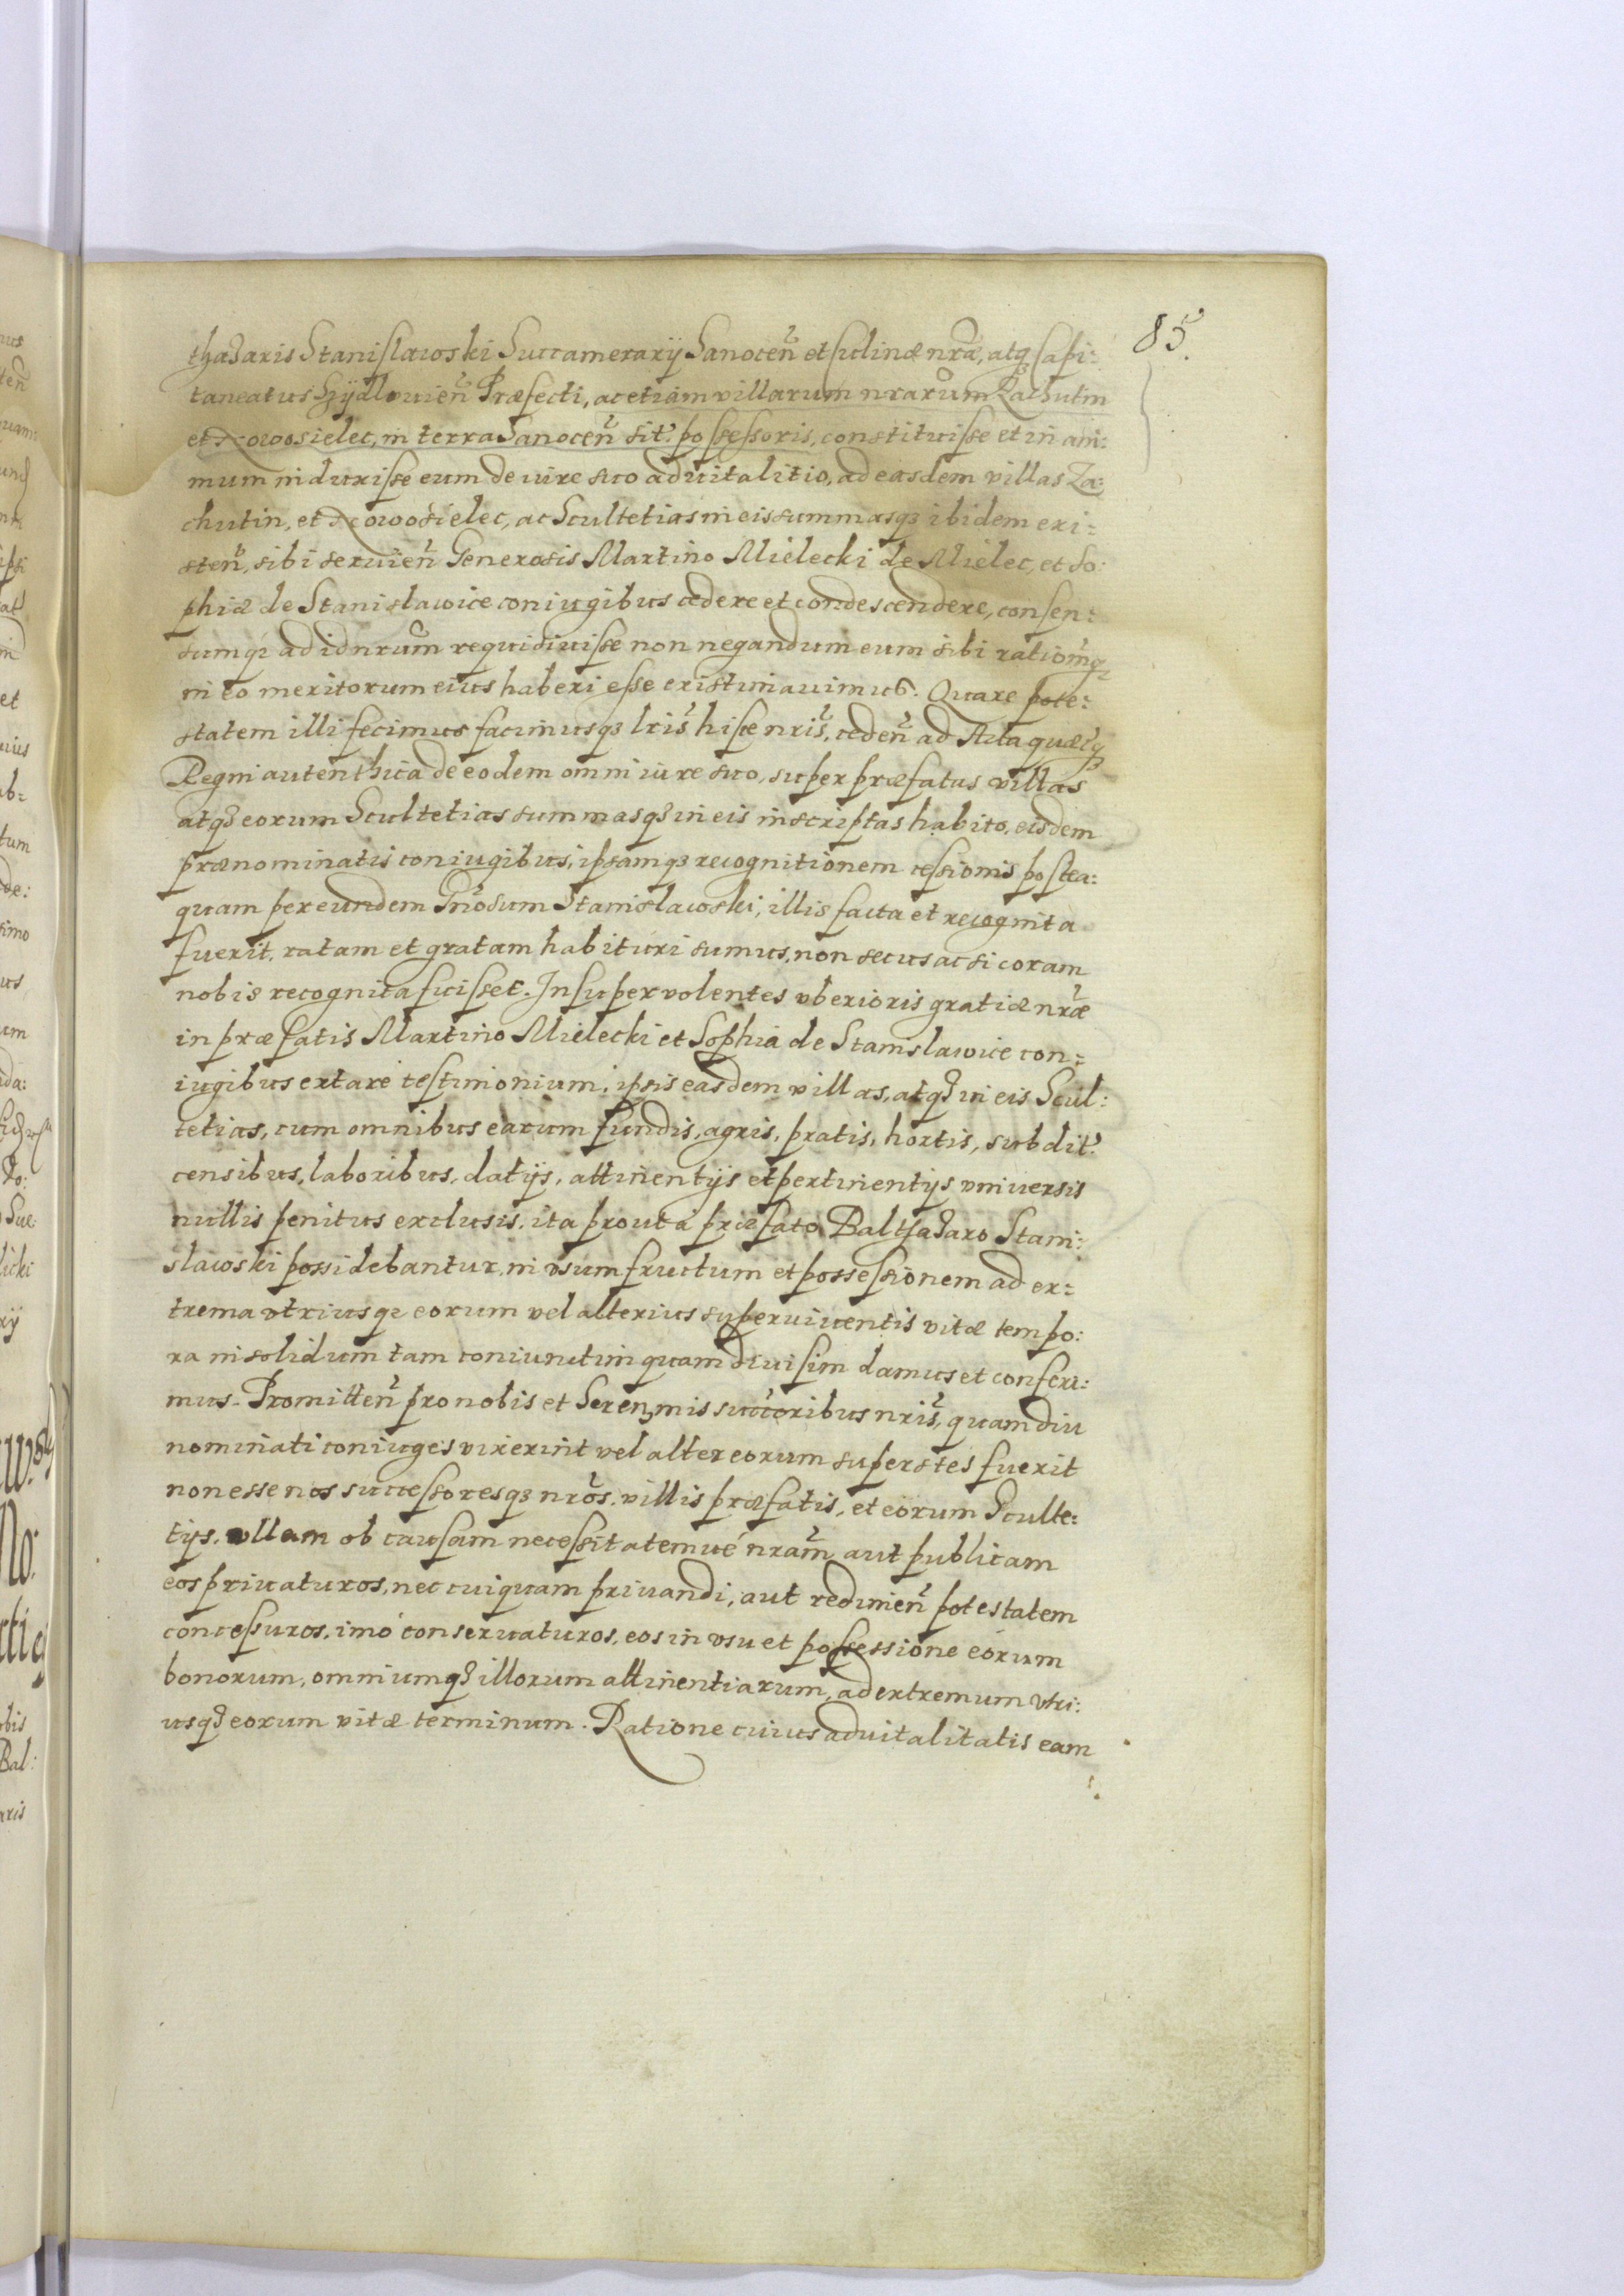 85.
thazaris Stanislawoski Succamerarij Sanocen̄ et culinæ nrã, atqz Capi:
taneatus Szydlouien̄ Præfecti, ac etiam villarum nrarum Zachutin
et Nowosielec, in terra Sanocen̄ sit̃ possessoris, constituisse et in ani:
mum induxisse eum de iure suo aduitalitio, ad easdem villas Za:
chutin, et Nowosielec, ac Scultetias in eis summasqz ibidem exi:
sten̄, sibi seruien̄ Generosis Martino Mielecki de Mielec, et So:
phiæ de Stanislawice coniugibus cedere et condescendere, consen:
sumqz ad id nrum̃ requisiuisse non negandum eum sibi rationẽqz
in eo meritorum eius haberi esse existimauimus. Quare pote:
statem illi fecimus facimusqz lris̃ hisce nris̃, ceden̄ ad Acta quæcqz
Regni autenthica de eodem omni iure suo, super præfatas villas
atqz eorum Scultetias summasqz in eis inscriptas habito, eisdem
prænominatis coniugibus, ipsamqz recognitionem cessionis postea:
quam per eundem Gñosum Stanislawoski, illis facta et recognita
fuerit, ratam et gratam habituri sumus, non secus ac si coram
nobis recognita fuisset. Insuper volentes vberioris gratiæ nræ̃
in præfatis Martino Mielecki et Sophia de Stanislawice con:
iugibus extare testimonium, ipsis easdem villas, atqz in eis Scul:
tetias, cum omnibus earum fundis, agris, pratis, hortis, subdit̃
censibus, laboribus, datijs, attinentijs et pertinentijs vniuersis
nullis penitus exclusis, ita prout à præfato Balthazaro Stani:
slawoski possidebantur, in vsum fructum et possessionem ad ex:
trema vtriusqz eorum vel alterius superuiuentis vitæ tempo:
ra in solidum tam coniunctim quam diuisim damus et conferi:
mus. Promitten̄ pro nobis et Serenmis succ̃oribus nris̃, quamdiu
nominati coniuges vixerint vel alter eorum superstes fuerit
non esse nos successoresqz nrõs, villis præfatis, et eorum Sculte:
tijs, vllam ob causam necessitatemué nram̃ aut publicam
eos priuaturos, nec cuiquam priuandi, aut redimen̄ potestatem
concessuros, imó conseruaturos, eos in vsu et possessione eorum
bonorum, omniumqz illorum attinentiarum, ad extremum vtri:
usqz eorum vitæ terminum. Ratione cuius aduitalitatis eam